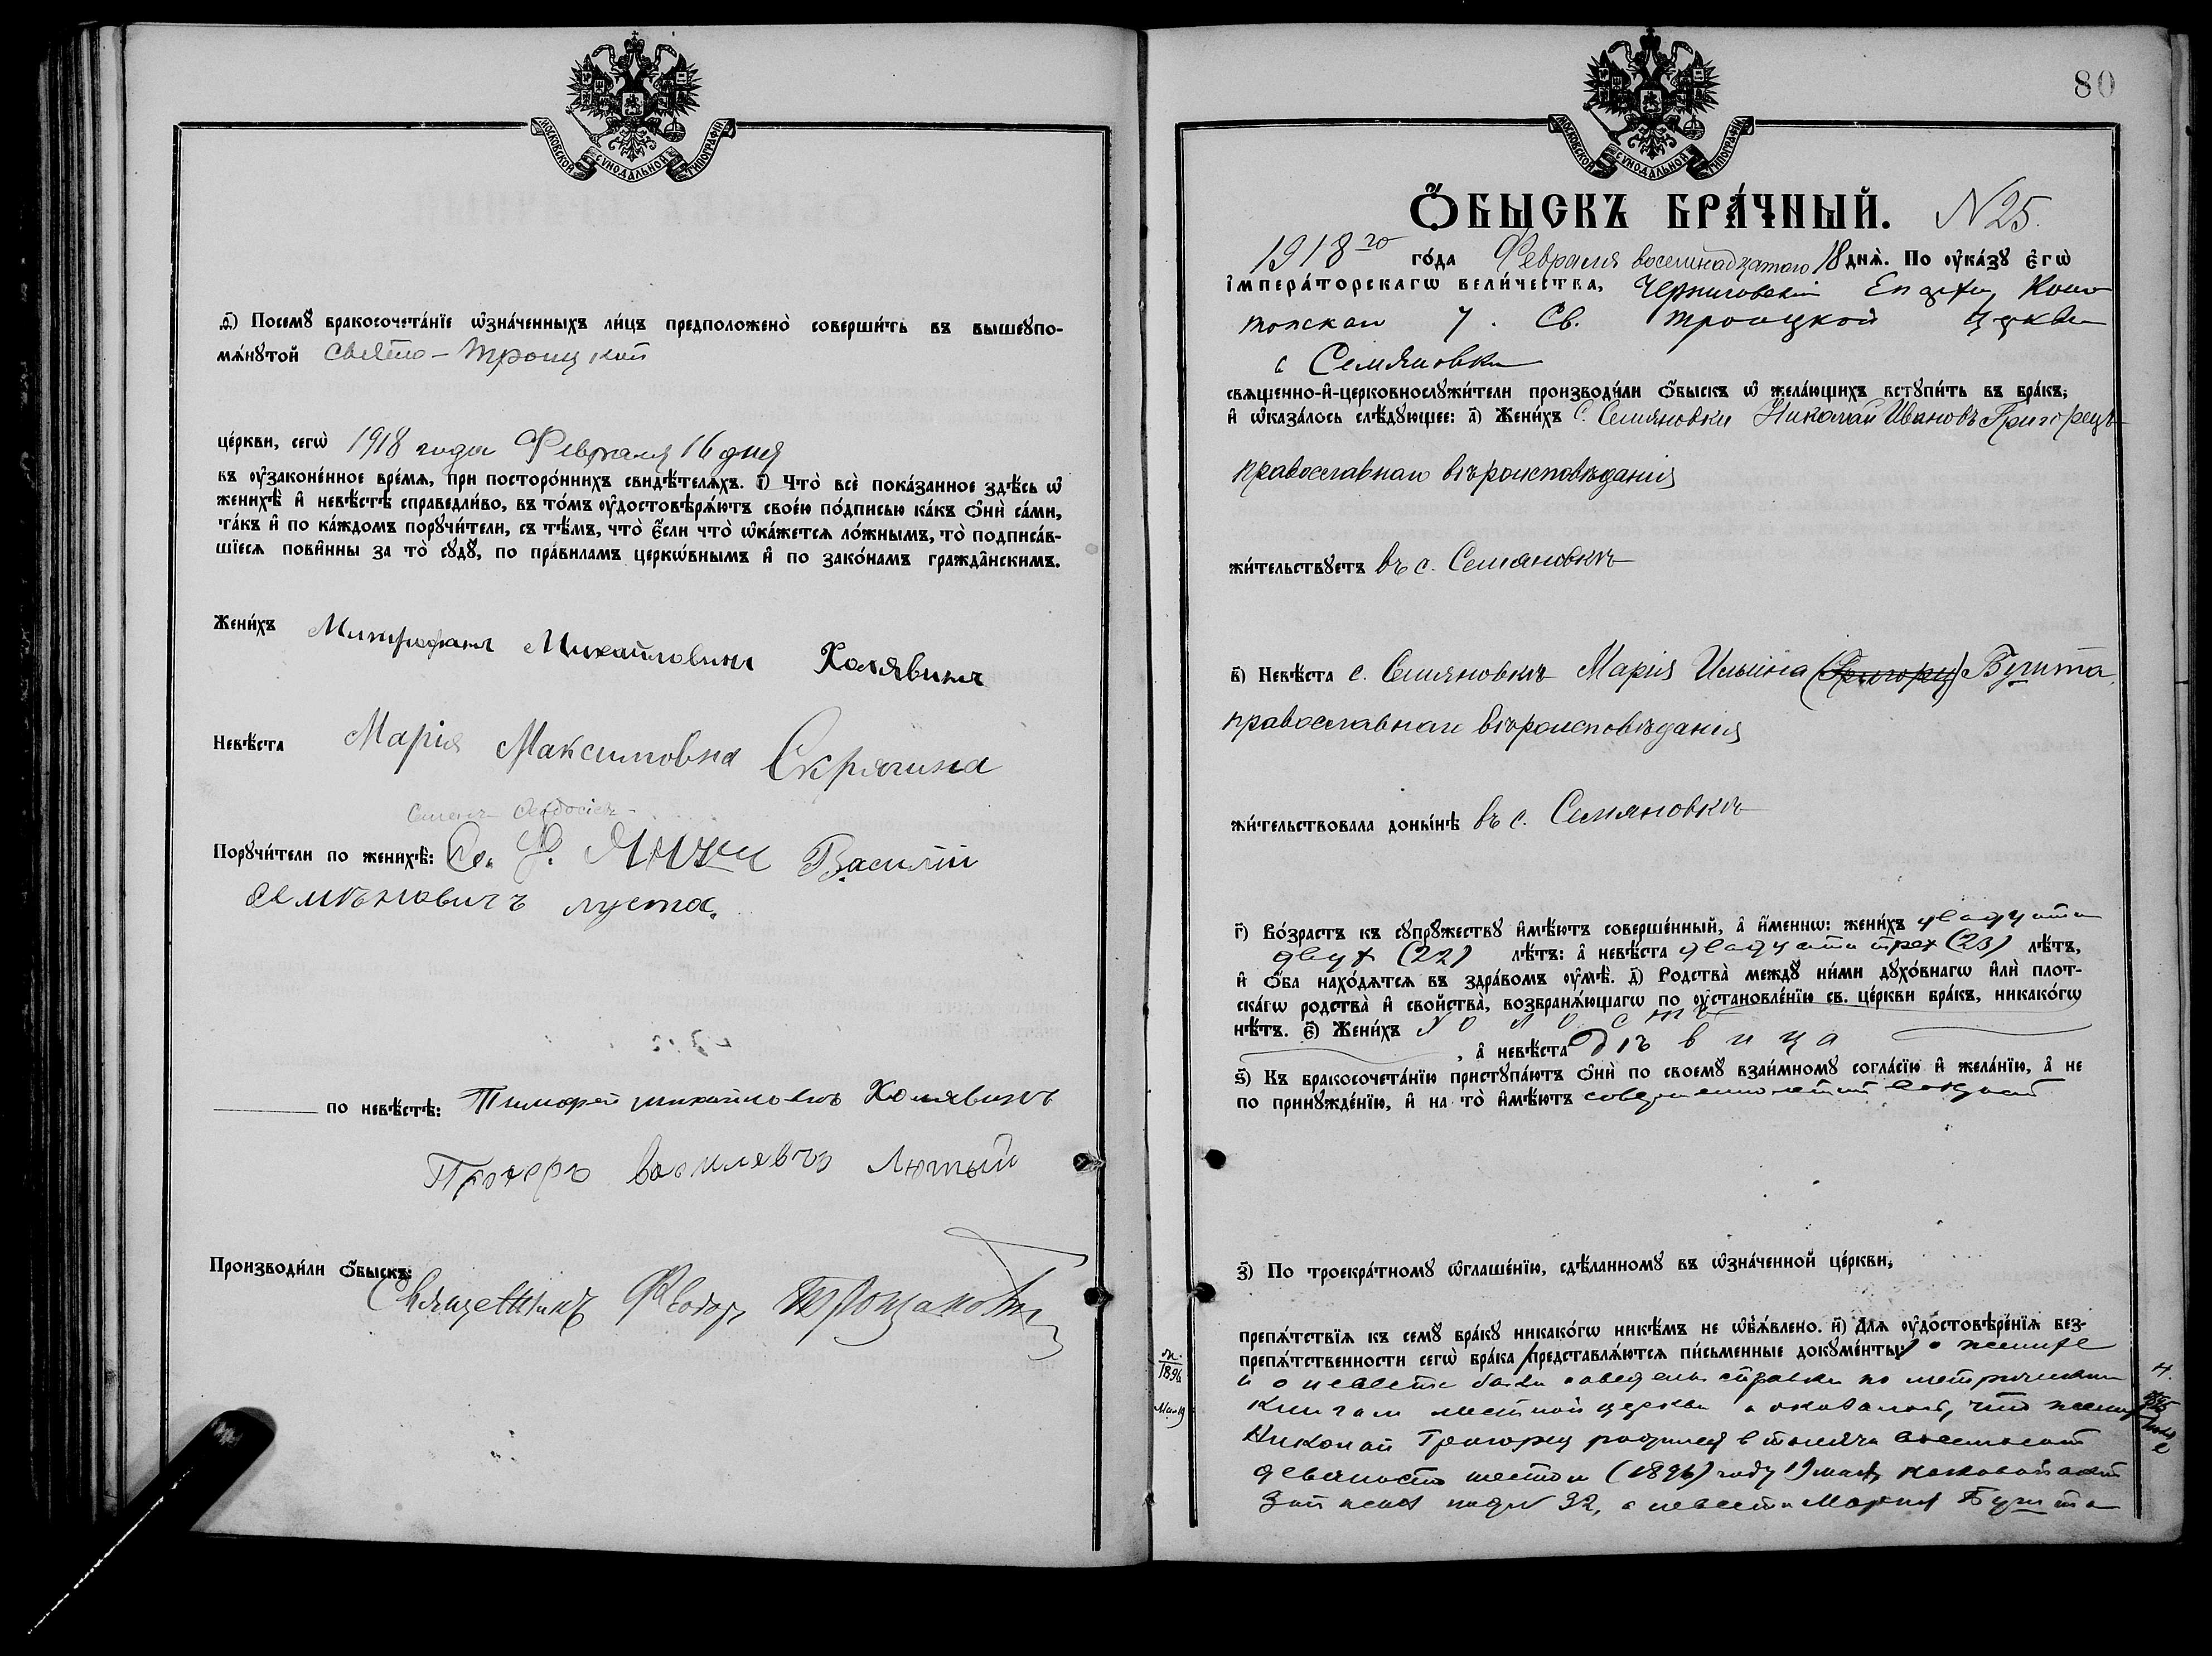 МОСКОВСКОЙ СѴНОДАЛЬНОЙ ТИПОГРАФІИ
д҃) Посемꙋ бракосочета́нїе ѡ҆зна́ченныхъ ли́цъ предположено̀ соверши́ть въ вышеꙋпо-
мѧ́нꙋтой Свято-Троицкой
це́ркви, сегѡ̀ 1918 года Февраля 16 дня
въ ᲂу҆законе́нное вре́мѧ, при посторо́ннихъ свидѣ́телѧхъ. і҃) Что̀ всѐ пока́занное здѣ́сь ѡ҆
женихѣ̀ и҆ невѣ́стѣ справедли́во, въ то́мъ ᲂу҆достовѣрѧ́ютъ свое́ю по́дписью ка́къ ѻ҆нѝ са́ми,
та́къ и҆ по ка́ждомъ порꙋчи́тели, съ тѣ́мъ, что̀ є҆́сли что̀ ѡ҆ка́жетсѧ ло́жнымъ, то̀ подписа́в-
шїесѧ пови́нны за то̀ сꙋдꙋ̀, по пра́виламъ церкѡ́внымъ и҆ по зако́намъ гражда́нскимъ.
Жени́хъ Митрофанъ Михайловичъ Холявинъ
Невѣ́ста Марія Максимовна Скрягина
Семенъ Феодосіевъ
Порꙋчи́тели по женихѣ̀: Се. Ф. Василій
Семѣновичъ луста.
по невѣ́стѣ: Тимофей михайловъ Холявинъ
Петръ василевъ Лютый
Производи́ли ѻ҆́быскъ:
Священникъ Феодоръ
80
МОСКОВСКОЙ СѴНОДАЛЬНОЙ ТИПОГРАФІИ
Ѻ҆́БЫСКЪ БРА́ЧНЫЙ. N 25.
1918 го го́да Февраля восемнадцатого 18 днѧ̀. По ᲂу҆ка́зꙋ є҆гѡ̀
і҆мпера́торскагѡ вели́чества, Черниговской Епархіи, Коно
топскаго у. Св. Троицкой церкви
с Семяновки
свѧще́нно-и҆-церковнослꙋжи́тели производи́ли ѻ҆́быскъ ѡ҆ жела́ющихъ встꙋпи́ть въ бра́къ;
и҆ ѡ҆каза́лось слѣ́дꙋющее: а҃) Жени́хъ С. Семяновки Николай Ивановъ Григорецъ
православнаго вѣроисповѣданія
жи́тельствꙋетъ въ с. Семяновкѣ
в҃) Невѣ́ста с. Семяновкѣ Марія Ильина (Григорец) Бушта
православнаго вѣроисповѣданія
жи́тельствовала доны́нѣ въ с. Семяновкѣ
г҃) Во́зрастъ къ сꙋпрꙋ́жествꙋ и҆мѣ́ютъ соверше́нный, а҆ и҆́меннѡ: жени́хъ двадцати
двух (22) лѣ́тъ: а҆ невѣ́ста двадцати трех (23) лѣ́тъ,
и҆ ѻ҆́ба нахо́дѧтсѧ въ здра́вомъ ᲂу҆мѣ̀. д҃) Родства̀ междꙋ̀ ни́ми дꙋхо́внагѡ и҆лѝ плот-
ска́гѡ родства̀ и҆ сво́йства, возбранѧ́ющагѡ по ᲂу҆становле́нїю св. це́ркви бра́къ, никако́гѡ
нѣ́тъ. є҃) Жени́хъ холостъ
, а҆ невѣ́ста дѣвица
ѕ҃) Къ бракосочета́нїю пристꙋпа́ютъ ѻ҆нѝ по своемꙋ̀ взаи́мномꙋ согла́сїю и҆ жела́нїю, а҆ не
по принꙋжде́нїю, и҆ на то̀ и҆мѣ́ютъ совершеннолетній возраст
з҃) По троекра́тномꙋ ѡ҆глаше́нїю, сдѣ́ланномꙋ въ ѡ҆зна́ченной це́ркви,
препѧ́тствїѧ къ семꙋ̀ бра́кꙋ никако́гѡ никѣ́мъ не ѡ҆б̾ѧ́влено. и҃) Длѧ̀ ᲂу҆достовѣре́нїѧ без-
препѧ́тственности сегѡ̀ бра́ка представлѧ́ютсѧ пи́сьменные докꙋме́нты: о женихе
и о невесте были наведены справки по метрическим
книгам местной церкви и оказалось, что жених
Николай Григорец родился в тысяча восемьсот
девяносто шестом (1896) году 19 мая, каковой акт
записан под N 32, а невеста Мария Бушта
1896
Мая 19